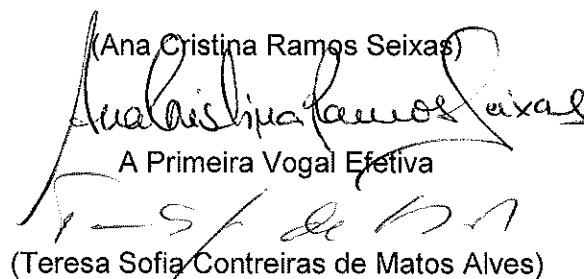 (Ana Cristina Ramos Seixas)
Ana Cristina Ramos Seixas
A Primeira Vogal Efetiva
(Teresa Sofia Contreiras de Matos Alves)